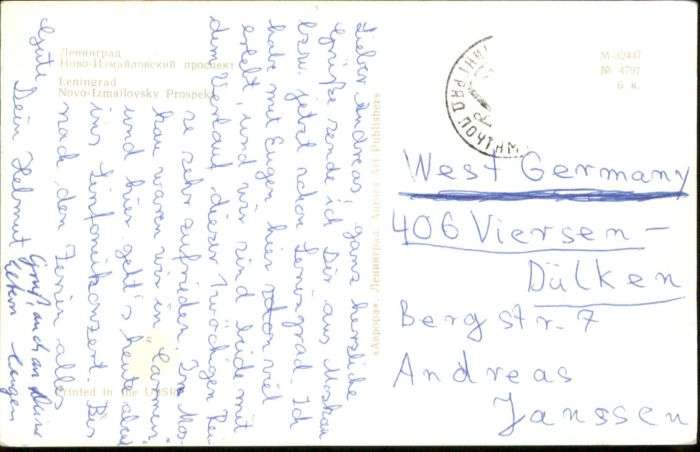 Ленинград
Ново-Измайловский проспект
Leningrad
Novo-Izmailovsky Prospekt
Lieber Andreas, ganz herzliche
Grüße sende ich Dir aus Moskau
bzw. jetzt schon Leningrad. Ich
habe mit Eugen hier schon viel
erlebt, und wir sind beide mit
dem Verlauf dieser 2wöchigen Rei
se sehr zufrieden. In Mos-
kau waren wir in "Carmen"
und hier geht's heute abend
ins Sinfoniekonzert. Bis
nach den Ferien alles
Gute
Dein Helmut
Gruß auch an Deine
Eltern Eugen
Printed in the USSR
«Аврора» Ленинград Aurora Art Publishers
М-32447
№ 4797
6 к.
ПОЧТАМТ
West Germany
406 Viersen-
Dülken
Bergstr. 7
Andreas
Janssen